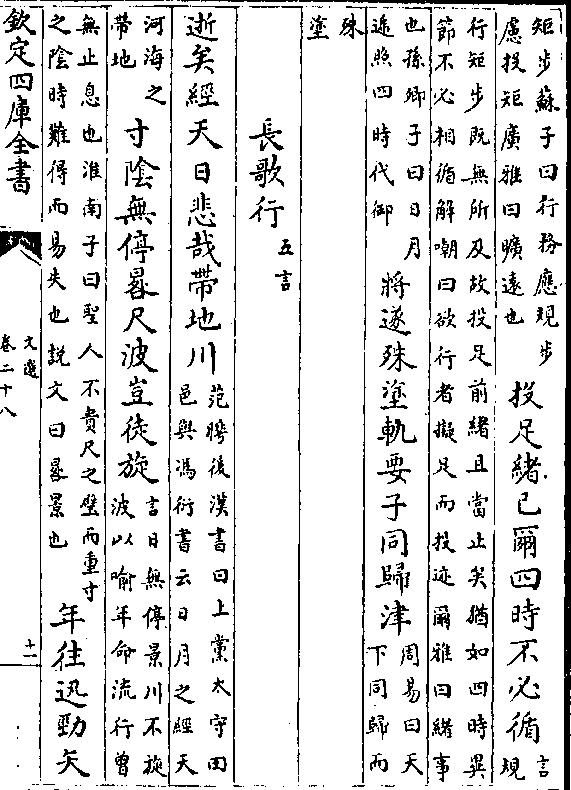 矩步蘇子曰行務應規步
慮投矩廣雅曰曠遠也
投足緒已爾四時不必循
言
規
行矩步既無所及故投足前緒且當止矣猶如四時異
節不必相循解嘲曰欲行者擬足而投迹爾雅曰緒事
也孫卿子曰日月
遞照四時代御
將遂殊塗軌要子同歸津
周易曰天
下同歸而
殊
塗
長歌行
五言
逝矣經天日悲哉帶地川
范曄後漢書曰上黨太守田
邑與馮衍書云日月之經天
河海之
帶地
寸陰無停晷尺波豈徒旋
言日無停景川不旋
波以喻年命流行曾
無止息也淮南子曰聖人不貴尺之璧而重寸
之陰時難得而易失也説文曰晷景也
年往迅勁矢
欽定四庫全書
文選
卷二十八
十一